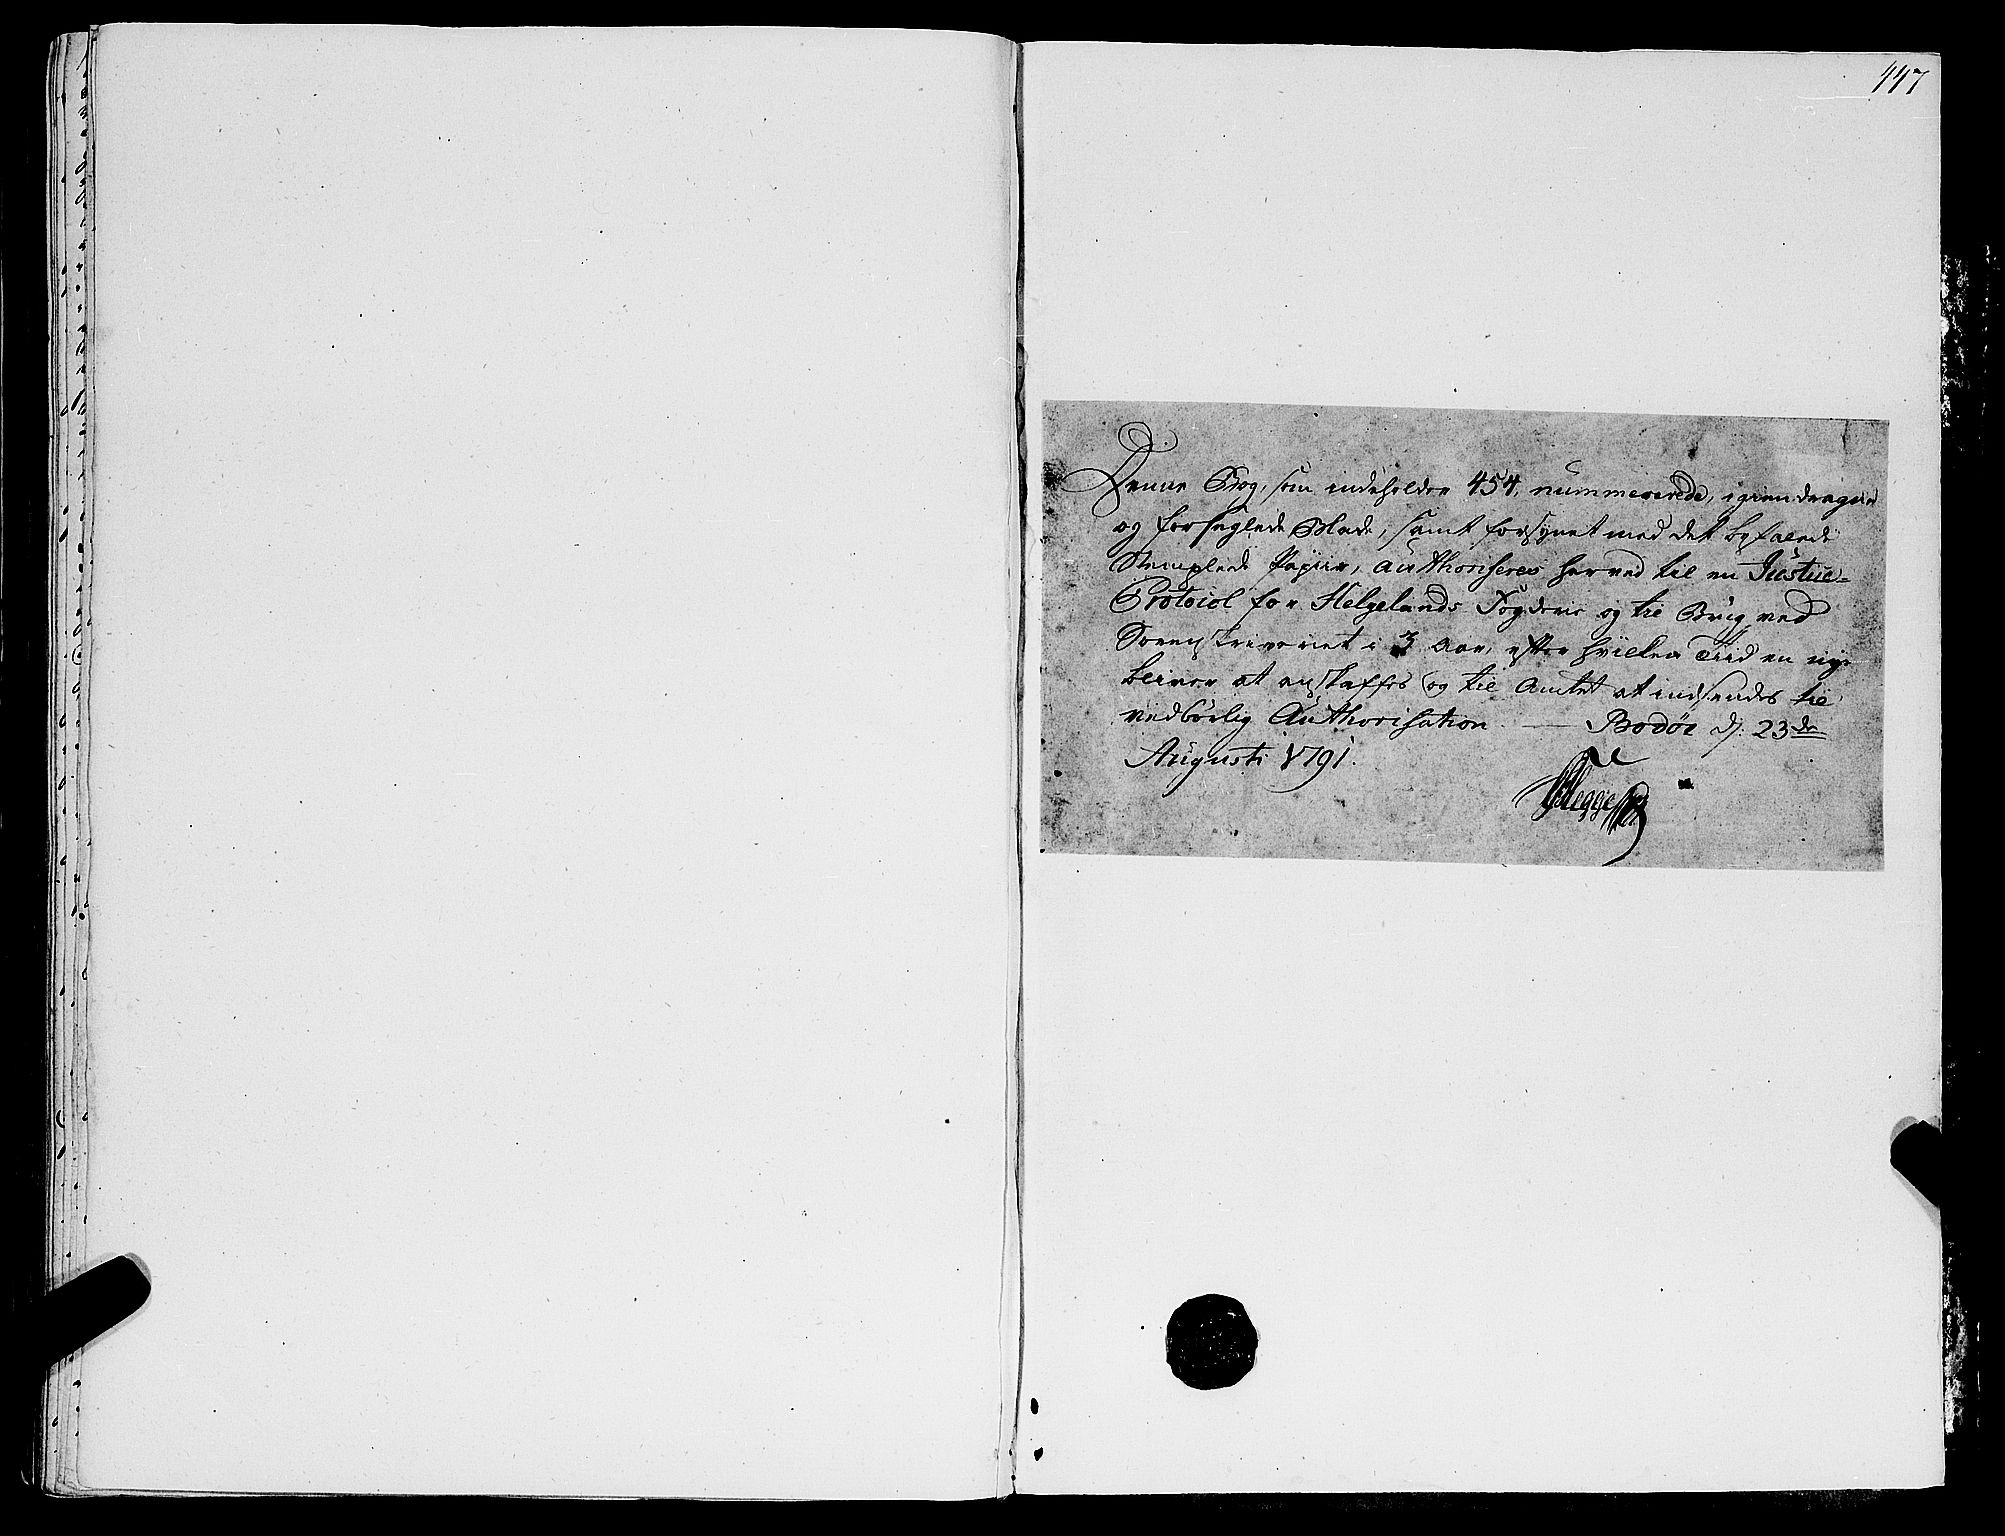 447
Denne Bog, som indeholder 454, nummererede, igiendragne
og forseglede Blade, samt forsynet med det befalede
Stemplede Papiir, authoriseres herved til en Justice-
Protocol for Helgelands Fogderie og til Brug ved
Sorenskriveriet i 3 Aar, efter hvilken Tiid en nye
bliver at anskaffes og til Amtet at indsendes til
vedbörlig Authorisation. — Bodøe d: 23de
Augusti 1791.